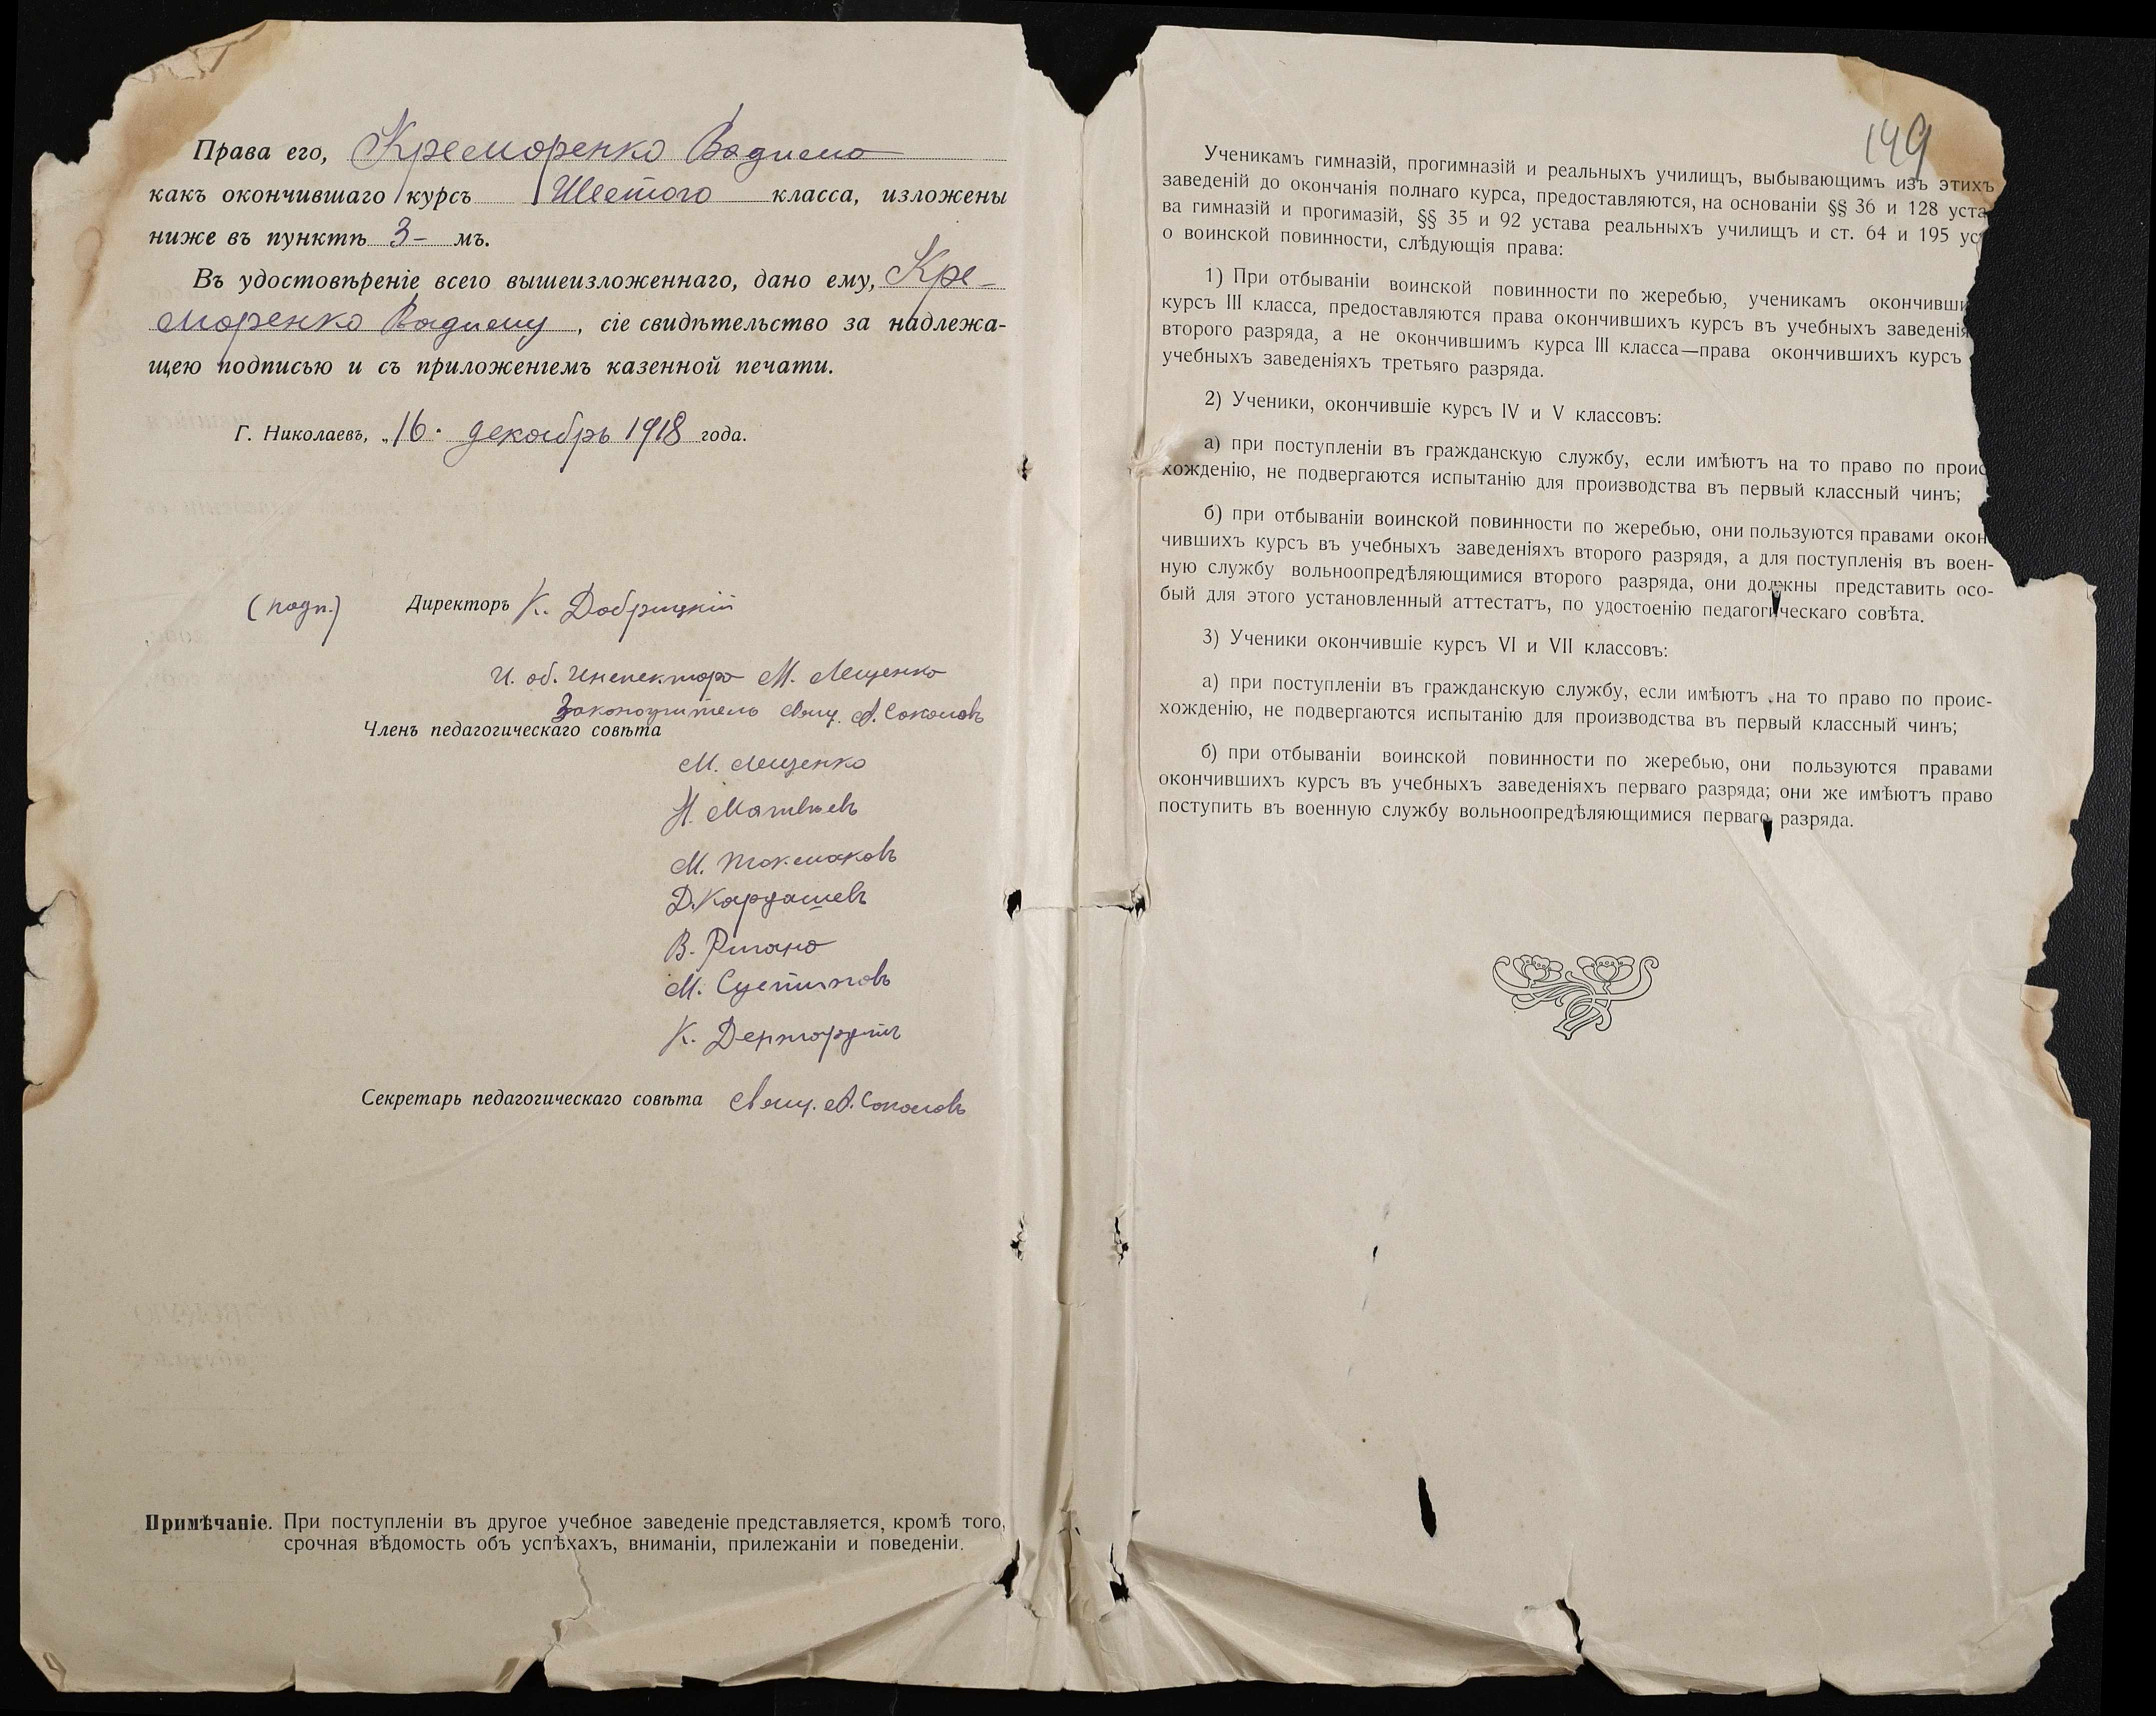 Права его, Креморенко Вадима
какъ окончившаго курсъ Шестого класса, изложены
ниже въ пунктѣ 3- мъ.
Въ удостовѣреніе всего вышеизложеннаго, дано ему, Кре-
моренко Вадиму, сіе свидѣтельство за надлежа-
щею подписью и съ приложеніемъ казенной печати.
Г. Николаевъ, „16· декабрь 1918 года.
(подп.) Директоръ К. Добрицкій
И. об. Инспектора М. Лещенко
Законоучитель Свящ. А. Соколовъ
Членъ педагогическаго совѣта
М. Лещенко
Н. Матвѣевъ
М. Токмаковъ
Д. Кардашевъ
В.
М.
К.
Секретарь педагогическаго совѣта Свящ. А. Соколовъ
Примѣчаніе. При поступленіи въ другое учебное заведеніе представляется, кромѣ того,
срочная вѣдомость объ успѣхахъ, вниманіи, прилежаніи и поведеніи.
149
Ученикамъ гимназій, прогимназій и реальныхъ училищъ, выбывающимъ изъ этихъ
заведеній до окончанія полнаго курса, предоставляются, на основаніи §§ 36 и 128 уста
ва гимназій и прогимазій, §§ 35 и 92 устава реальныхъ училищъ и ст. 64 и 195 ус
о воинской повинности, слѣдующія права:
1) При отбываніи воинской повинности по жеребью, ученикамъ окончивши
курсъ III класса, предоставляются права окончившихъ курсъ въ учебныхъ заведенія
второго разряда, а не окончившимъ курса III класса—права окончившихъ курсъ
учебныхъ заведеніяхъ третьяго разряда.
2) Ученики, окончившіе курсъ IV и V классовъ:
а) при поступленіи въ гражданскую службу, если имѣютъ на то право по проис
хожденію, не подвергаются испытанію для производства въ первый классный чинъ;
б) при отбываніи воинской повинности по жеребью, они пользуются правами окон
чившихъ курсъ въ учебныхъ заведеніяхъ второго разрядя, а для поступленія въ воен-
ную службу вольноопредѣляющимися второго разряда, они должны представить осо-
бый для этого установленный аттестатъ, по удостоенію педагогическаго совѣта.
3) Ученики окончившіе курсъ VI и VII классовъ:
а) при поступленіи въ гражданскую службу, если имѣютъ на то право по проис-
хожденію, не подвергаются испытанію для производства въ первый классный чинъ;
б) при отбываніи воинской повинности по жеребью, они пользуются правами
окончившихъ курсъ въ учебныхъ заведеніяхъ перваго разряда; они же имѣютъ право
поступить въ военную службу вольноопредѣляющимися перваго разряда.